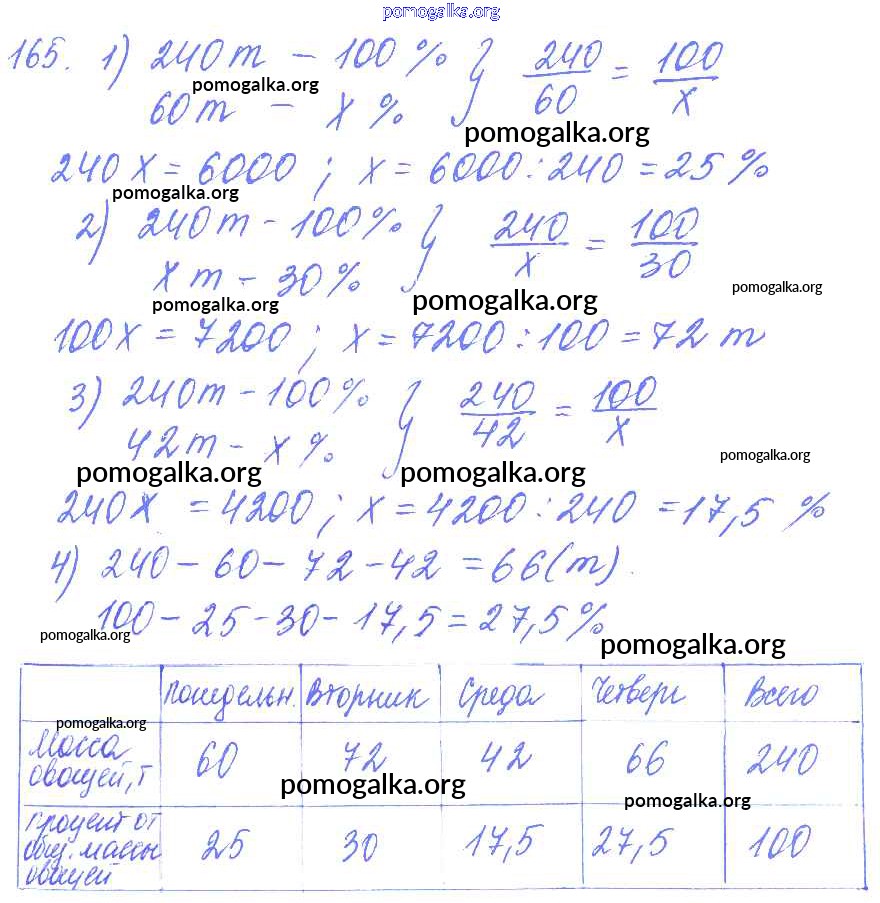 pomogalka.org
165. 1) 240 т – 100 % } 240/60 = 100/x
pomogalka.org
60 т – x %
pomogalka.org
240 x = 6000 ; x = 6000 : 240 = 25 %
pomogalka.org
2) 240 т – 100 % } 240/x = 100/30
x т – 30 %
pomogalka.org
pomogalka.org pomogalka.org
100 x = 7200 ; x = 7200 : 100 = 72 т
3) 240 т – 100 % } 240/42 = 100/x
42 т – x %
pomogalka.org
pomogalka.org pomogalka.org
240 x = 4200 ; x = 4200 : 240 = 17,5 %
4) 240 – 60 – 72 – 42 = 66 (т)
100 – 25 – 30 – 17,5 = 27,5 %
pomogalka.org
pomogalka.org
Понедельн. Вторник Среда Четверг Всего
pomogalka.org
Масса
овощей, т 60 72 42 66 240
pomogalka.org
pomogalka.org
процент от
общ. массы 25 30 17,5 27,5 100
овощей